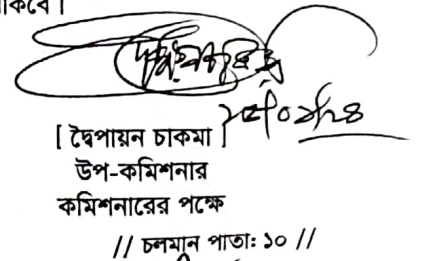 াকবে।
[ দ্বৈপায়ন চাকমা ]
উপ-কমিশনার
কমিশনারের পক্ষে
// চলমান পাতা: ১০ //